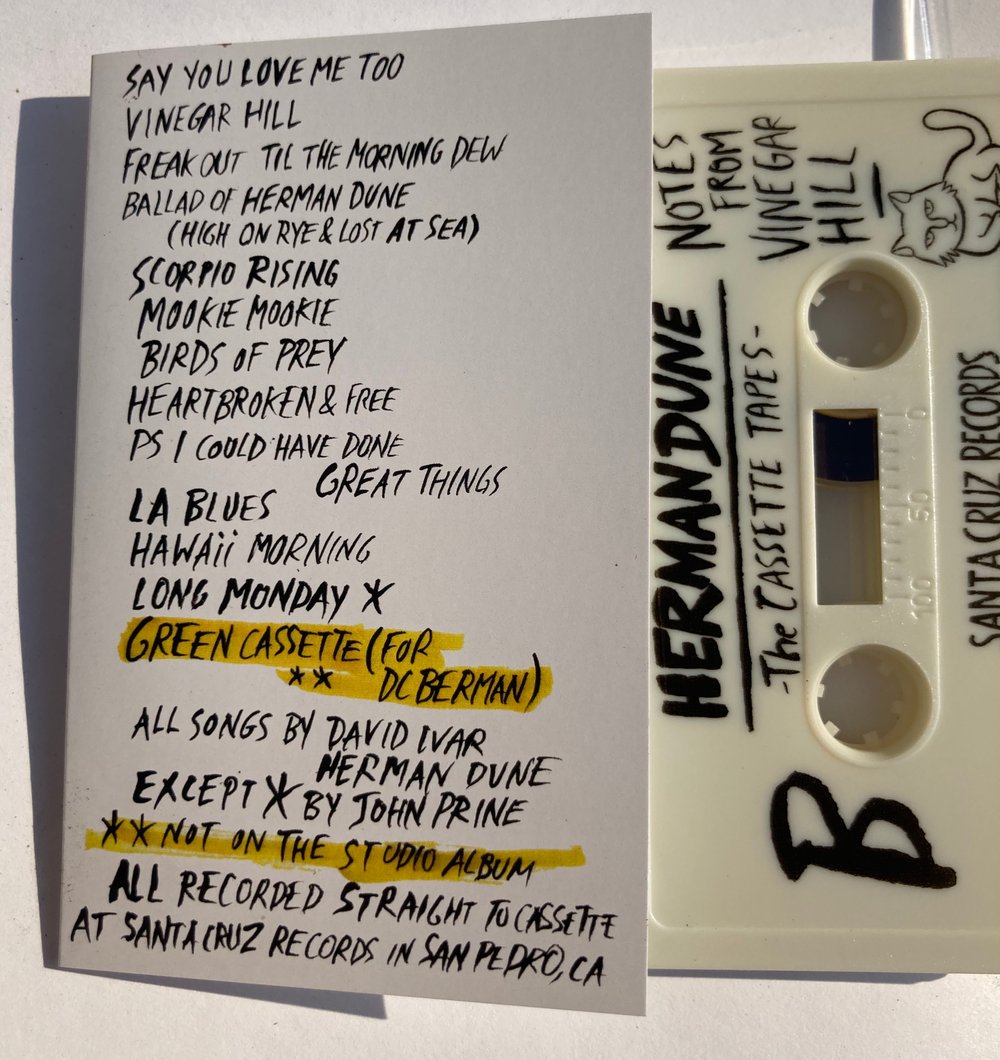 SAY YOU LOVE ME TOO
VINEGAR HILL
FREAK OUT TIL THE MORNING DEW
BALLAD OF HERMAN DUNE
(HIGH ON RYE & LOST AT SEA)
SCORPIO RISING
MOOKIE MOOKIE
BIRDS OF PREY
HEARTBROKEN & FREE
PS I COULD HAVE DONE
GREAT THINGS
LA BLUES
HAWAii MORNING
LONG MONDAY *
GREEN CASSETTE (FOR
** DC BERMAN)
ALL SONGS BY DAVID IVAR
HERMAN DUNE
EXCEPT * BY JOHN PRINE
** NOT ON THE STUDIO ALBUM
ALL RECORDED STRAIGHT TO CASSETTE
AT SANTA CRUZ RECORDS IN SAN PEDRO, CA
NOTES
FROM
VINEGAR
HILL
HERMAN DUNE
-The CASSETTE TAPES-
0
50
100
SANTA CRUZ RECORDS
B